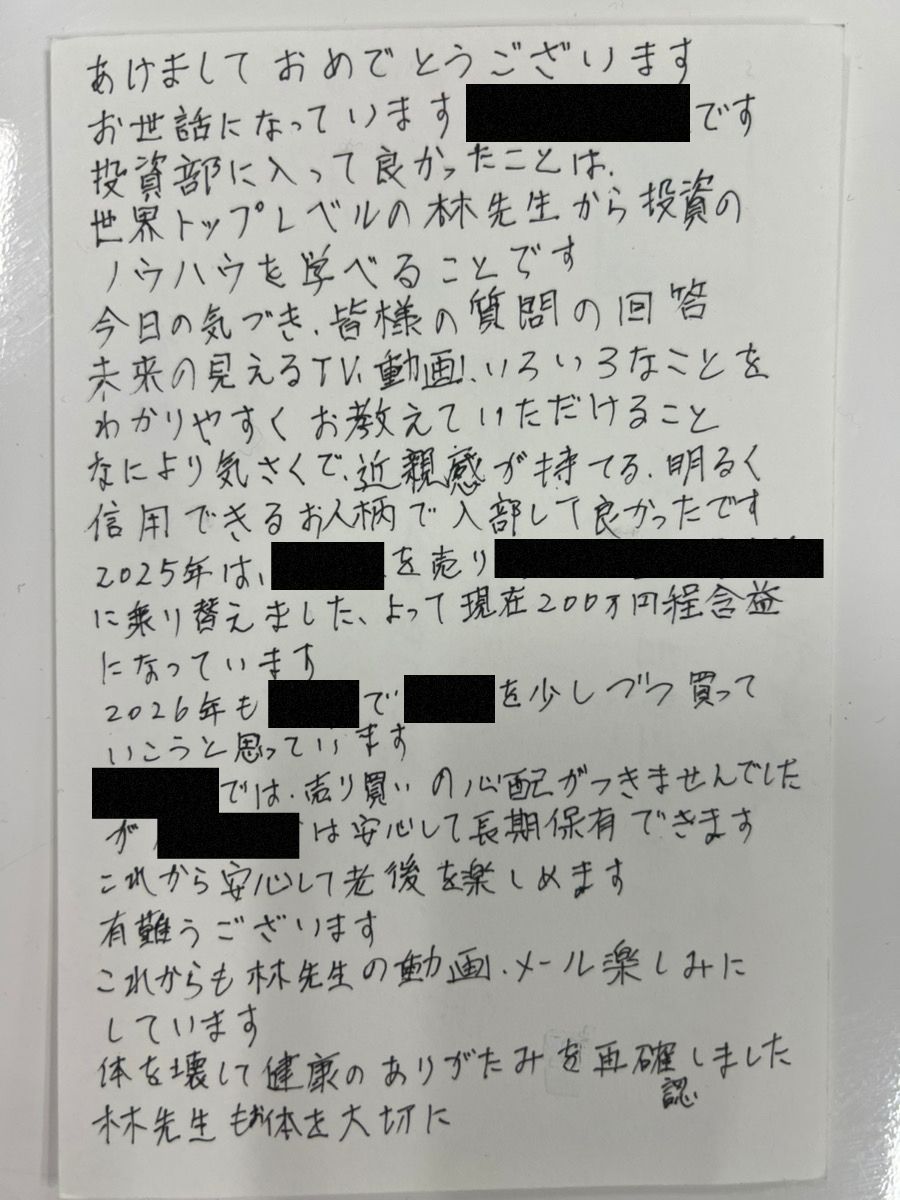 あけまして おめでとうございます
お世話になっています です
投資部に入って良かったことは、
世界トップレベルの林先生から投資の
ノウハウを学べることです
今日の気づき、皆様の質問の回答
未来の見えるTV、動画、いろいろなことを
わかりやすくお教えていただけること
なにより気さくで、近親感が持てる、明るく
信用できるお人柄で入部して良かったです
2025年は、 を売り
に乗り替えました、よって現在200万円程含益
になっています
2026年も で を少しづつ買って
いこうと思っています
では、売り買いの心配がつきませんでした
が は安心して長期保有できます
これから安心して老後を楽しめます
有難うございます
これからも林先生の動画、メール楽しみに
しています
体を壊して健康のありがたみを再確認しました
林先生もお体を大切に